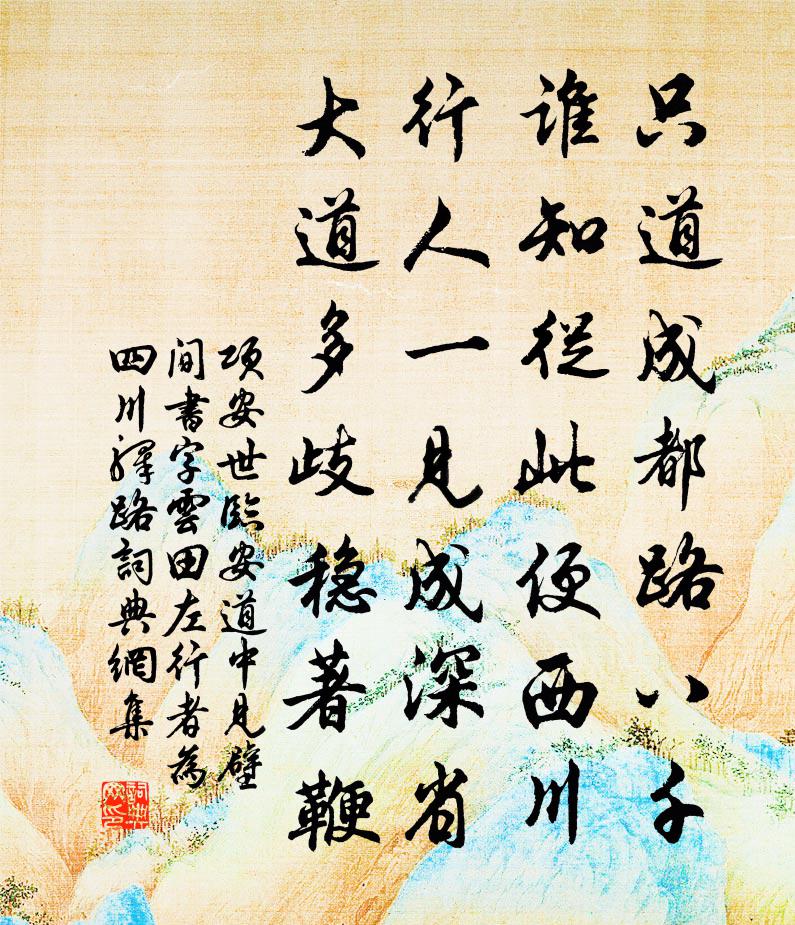 只道成都路八千
谁知従此便西川
行人一见成深省
大道多歧稳著鞭
项安世臨安道中見壁
间書字雲田左行者為
四川驛路詞典網集